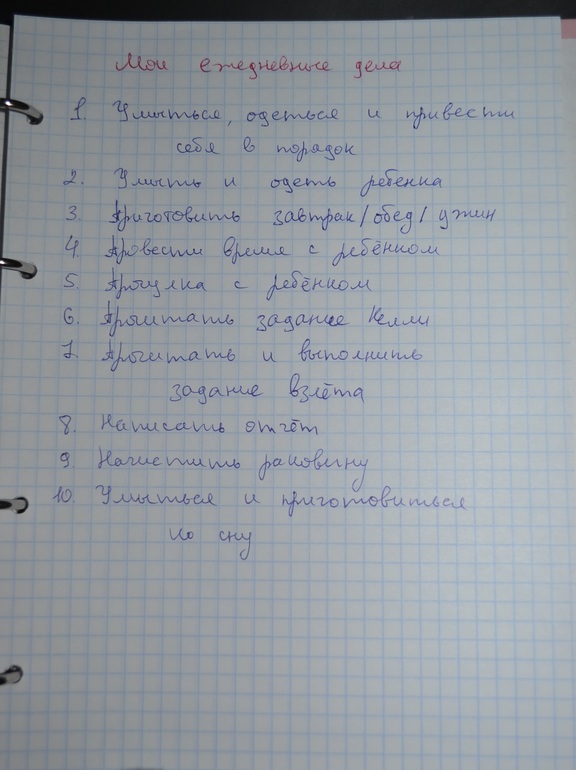 Мои ежедневные дела
1. Умыться, одеться и привести
себя в порядок
2. Умыть и одеть ребенка
3. Приготовить завтрак/обед/ужин
4. Провести время с ребёнком
5. Прогулка с ребёнком
6. Прочитать задание Келли
7. Прочитать и выполнить
задание взлёта
8. Написать отчёт
9. Начистить раковину
10. Умыться и приготовиться
ко сну